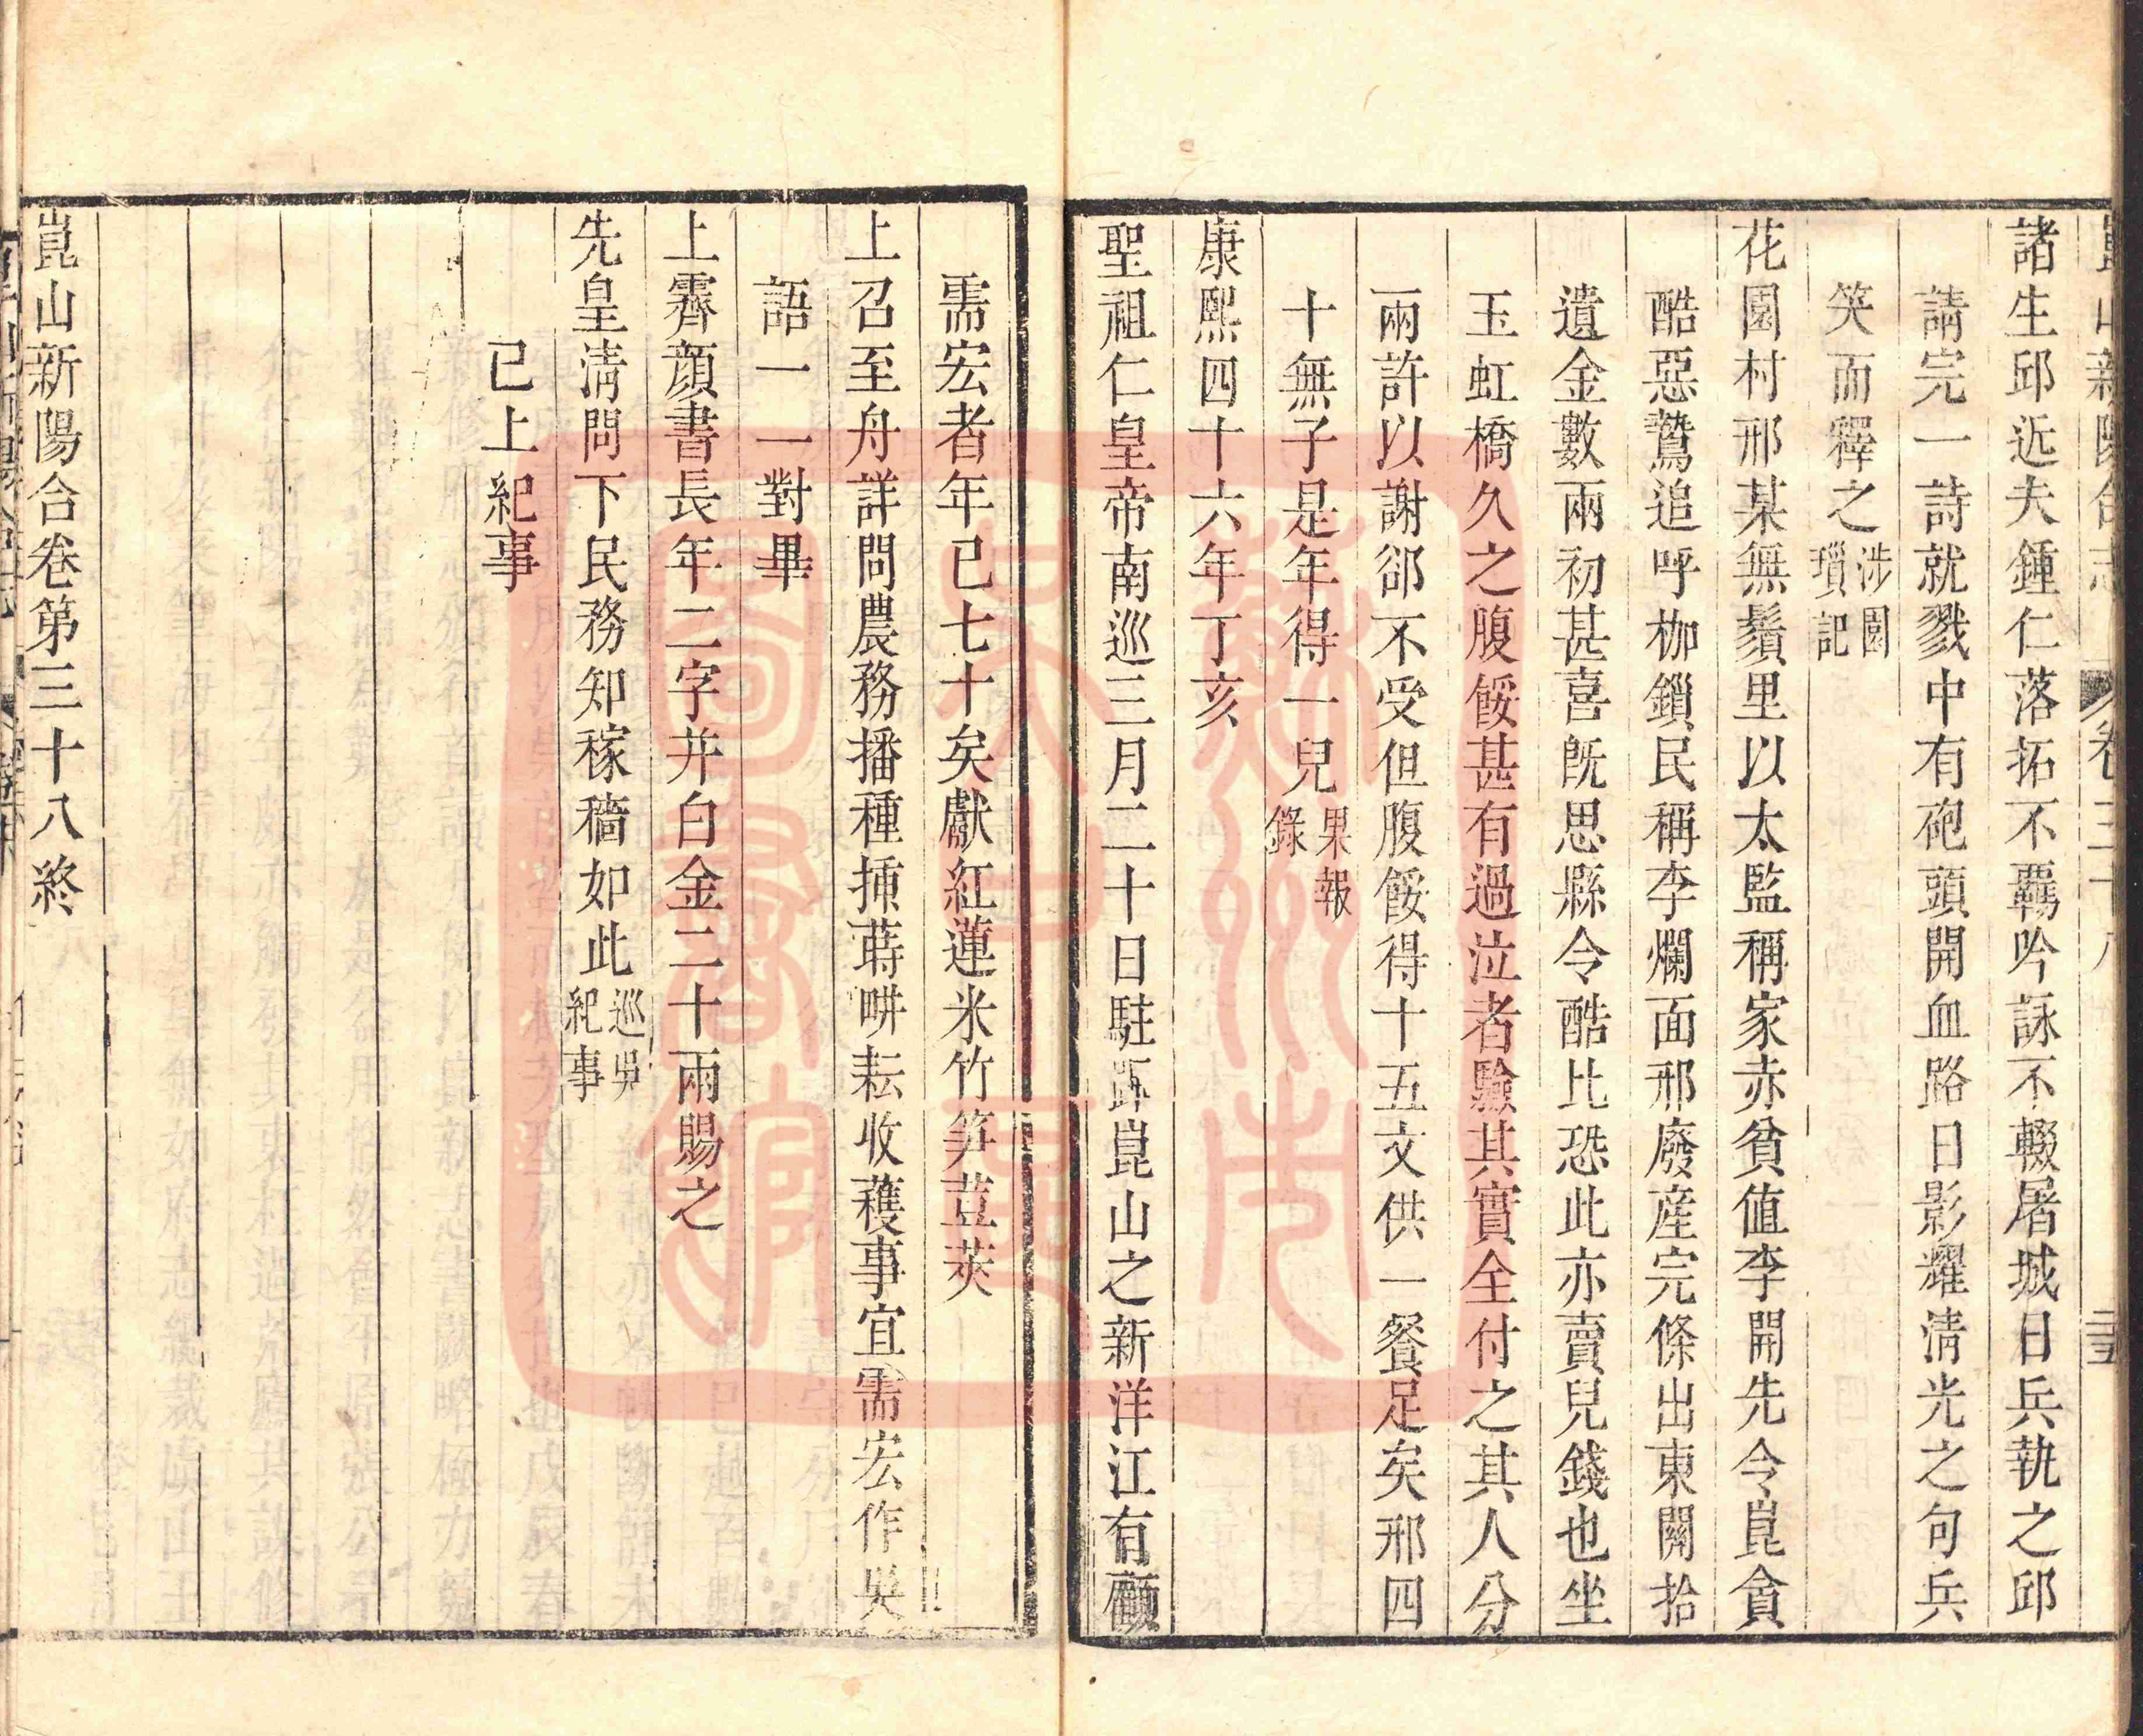 諸生邱近夫鍾仁落拓不羈吟詠不輟屠城日兵執之邱
請完一詩就戮中有砲頭開血路日影耀淸光之句兵
笑而釋之涉園瑣記
花園村邢某無鬚里以太監稱家赤貧值李開先令崑貪
酷惡鷙追呼枷鎖民稱李爛面邢廢産完條出東關拾
遺金數兩初甚喜旣思縣令酷比恐此亦賣兒錢也坐
玉虹橋久之腹餒甚有過泣者驗其實全付之其人分
兩許以謝郤不受但腹餒得十五文供一餐足矣邢四
十無子是年得一兒果報錄
康熙四十六年丁亥
聖祖仁皇帝南巡三月二十日駐蹕崑山之新洋江有顧
需宏者年已七十矣獻紅蓮米竹笋荳莢
上召至舟詳問農務播種揷蒔畊耘收穫事宜需宏作吳
語一一對畢
上霽顔書長年二字并白金二十兩賜之
先皇淸問下民務知稼穡如此巡吳紀事
已上紀事
崑山新陽合卷第三十八終
蘇州市
圖書館